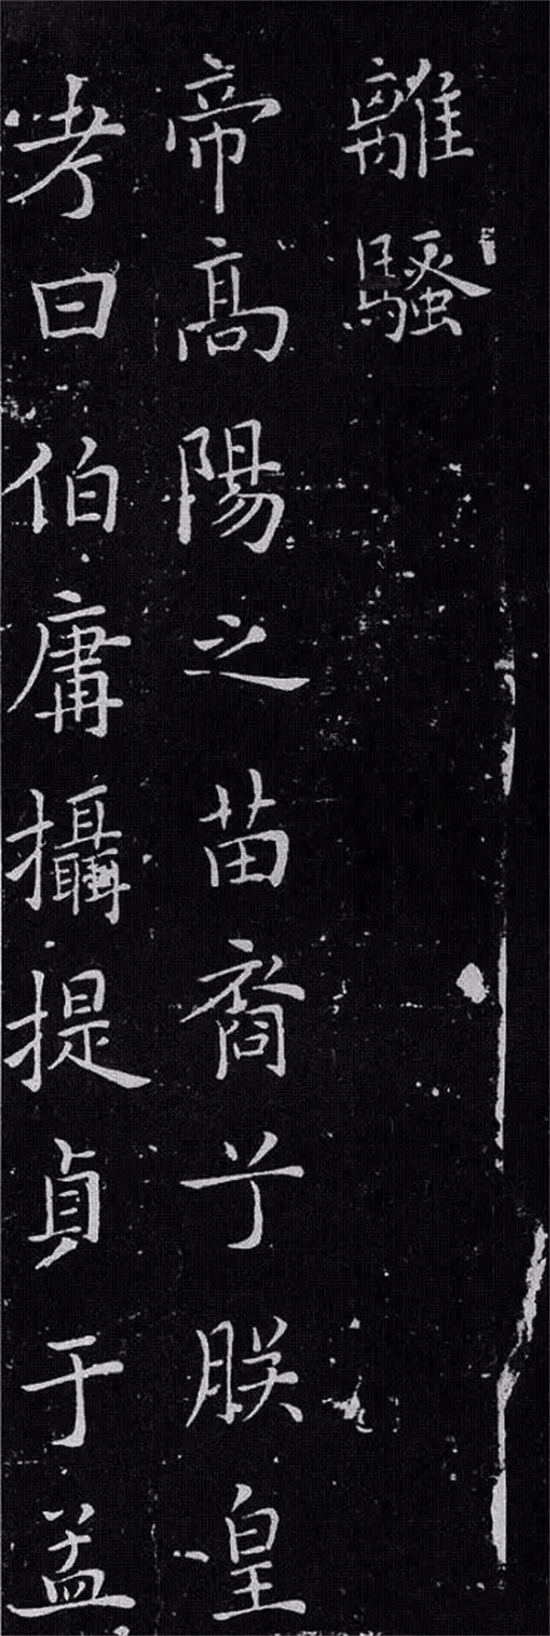 離騷
帝高陽之苗裔兮朕皇
考曰伯庸攝提貞于孟